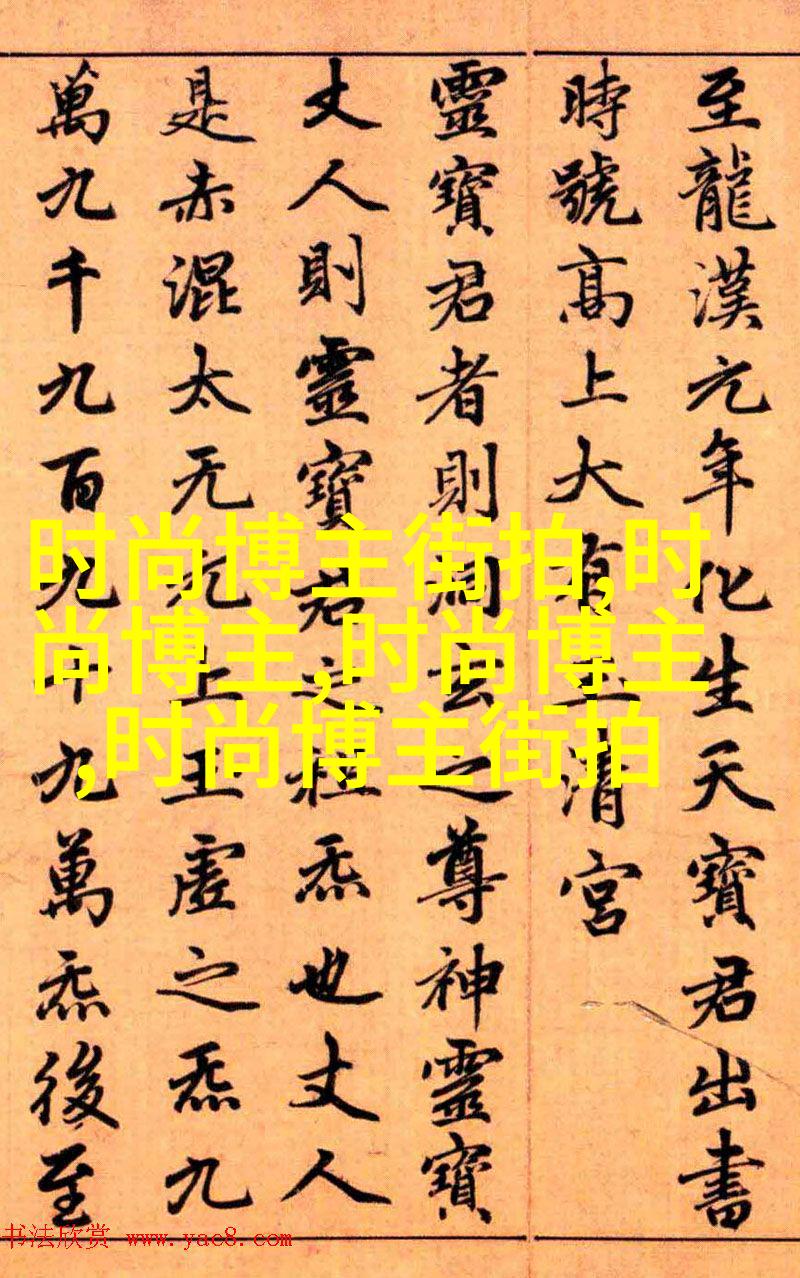 至龍漢元年化生天寶君出書
時號高上大有玉清宮
靈寶君者則洞玄之尊神靈寶
丈人則靈寶君之祖炁也丈人
是赤混太无元上王虛之炁九
萬九千九百九十九萬炁後至
时尚博主街拍,时
尚博主,时尚博主
,时尚博主街拍
书法欣赏 www.yac8.com